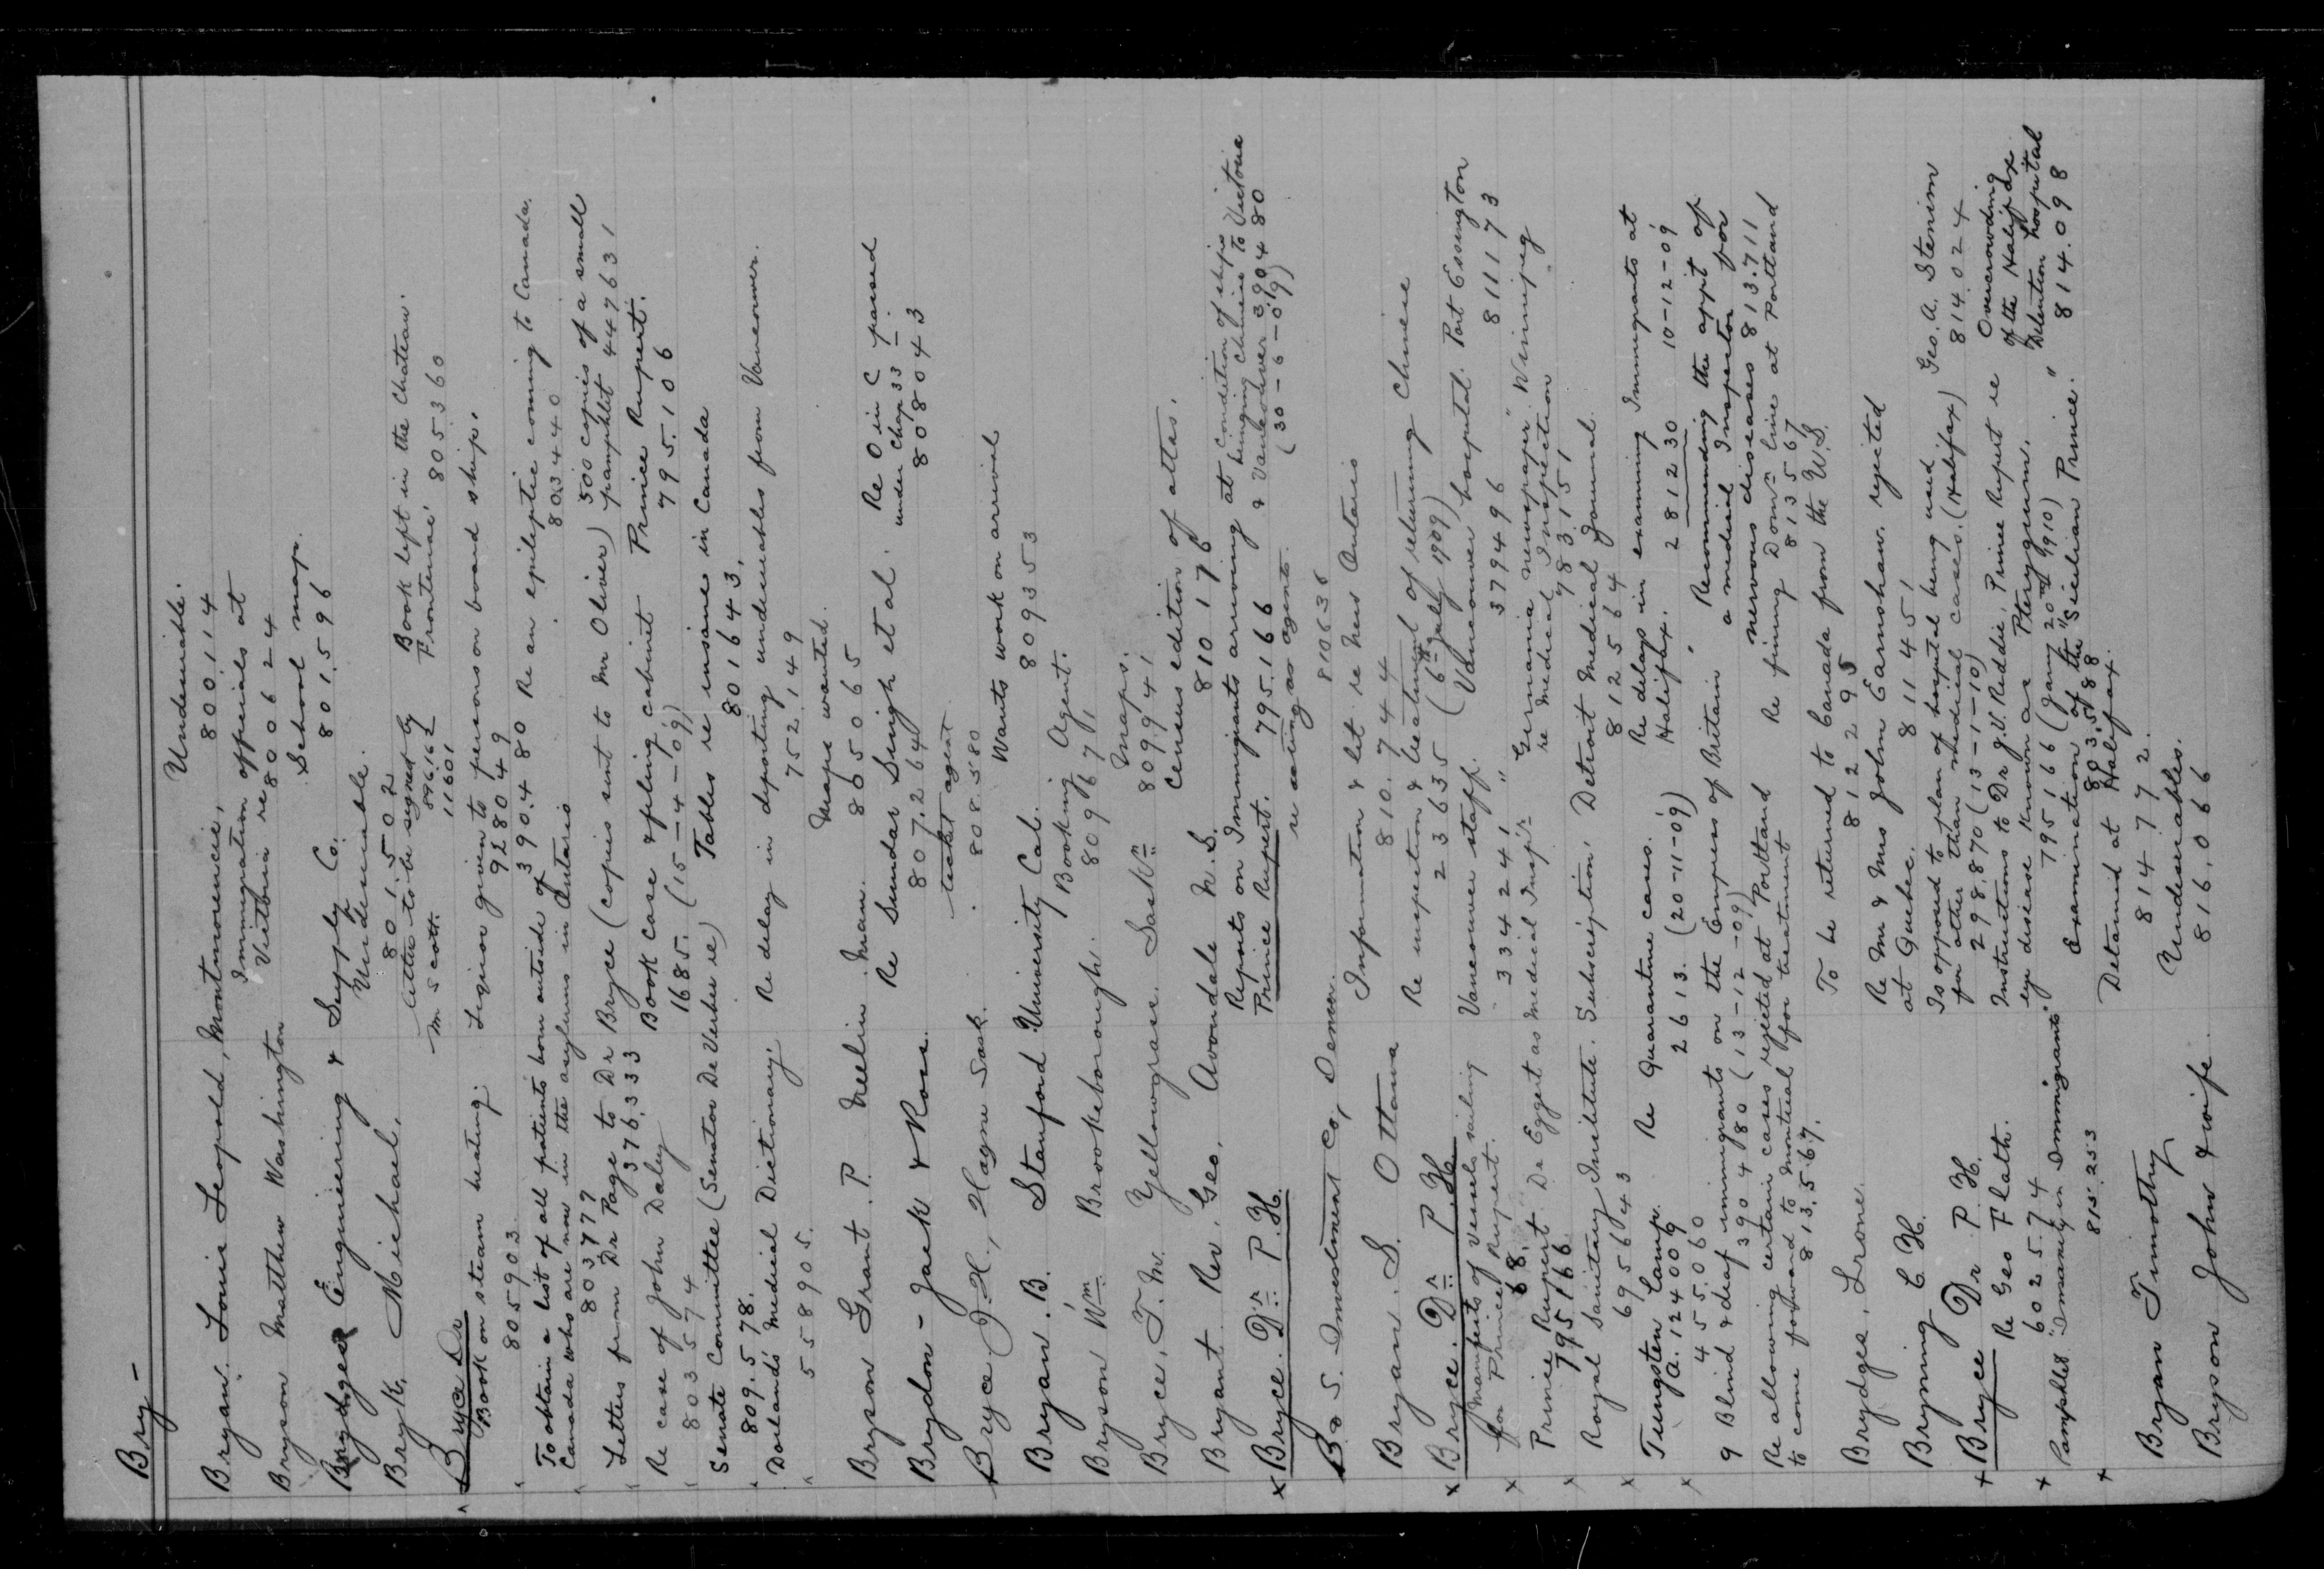 Bry -
Bryan. Louis Leopold, Montmorencie, Undesirable.
800.114
Bryson Matthew Washington Immigration officials at
Victoria re 800624
Brydges Engineering & Supply Co. School map.
801.596
Bryk, Michael, Undesirable.
801.502
Bryce Dr letter to be signed by Book left in the Chateau
M Scott. 89616 Frontenac 805360
11601
Book on steam heating. Liquor given to persons on board ship.
805903. 928049
To obtain a list of all patients born outside of 390.480 Re an epileptic coming to Canada.
Canada who are now in the asylums in Ontario 803440
80377
Letter from Dr Page to Dr Bryce (copies sent to Mr Oliver) 500 copies of a small
376.333 pamphlet 447631
Re case of John Daley Book case & filing cabinet Prince Rupert.
803574 1685. (15-4-09) 795.106
Senate Committee (Senator De Verber re) Tables re insane in Canada
809.578. 801643,
Dorland's Medical Dictionary. Re delay in deporting undesirables from Vancouver.
558905. 752,149
Bryson Grant. P. Neelin. Man. Maps wanted.
805065
Brydon - Jack & Ross. Re Sundar Singh et al. Re O in C passed
807.264 under Chap 33
808043
Bryce J. H., Hague Sask. ticket agent
808.580
Bryan. B. Stanford University Cal. Wants work on arrival
809353
Bryson Wm Brookeborough. Booking Agent.
809671
Bryce, T. M. Yellowgrass. Saskn Maps.
809941
Bryant Rev. Geo. Avondale N.S. Census edition of attes.
810176
Bryce. Dr. P. H. Reports on Immigrants arriving at condition of ships
Prince Rupert. 795.166 bringing Chinese to Victoria
& Vancouver 390480
(30-6-09)
B. S. Investment Co, Denver re acting as agents.
810636
Bryan. S. Ottawa Information & lit re New Ontario
810.744
Bryce. Dr. P. H. Re inspection & treatment of returning Chinese
23635 (6th July 1909)
Manifests of vessels sailing Vancouver staff. (Vancouver hospital. Port Essington
for Prince Rupert. 334241 " 379496 811173
68.
Prince Rupert Dr Eggert as Medical Inspr. Germania newspaper "Winnipeg"
795166 re Medical Inspection
783.151
Royal Sanitary Institute. Subscription, Detroit Medical Journal.
695643 812564
Tungsten Lamp. Re Quarantine cases. Re delays in examining Immigrants at
A. 124009 2613. (20-11-09) Halifax. 281230 10-12-09
455.060
9 Blind & deaf immigrants on the Empress of Britain Recommending the appt of
390480 (13-12-09) a medical Inspector for
nervous diseases 813.711
Re allowing certain cases rejected at Portland Re fining Domn line at Portland
to come forward to Montreal for treatment 813567
813.567.
Brydges, Lrone. To be returned to Canada from the U.S.
812295
Bryning C H. Re Mr & Mrs John Earnshaw. rejected
at Quebec. 811451
Bryce Dr P. H. Is opposed to plan of hospital being used Geo. A. Stenim
for other than medical cases. (Halifax) 814.024
298.870 (13-1-10)
Re Geo Flath. Instructions to Dr J. U. Reddie, Prince Rupert re Overcrowding
602574 eye disease known as Pterygium. of the Halifax
795166 (Jany 20th 1910) Detention hospital
814.098
Pamphlet "Insanity in Immigrants" Examination of the "Sicilian Prince."
815.253 803588
Bryan Timothy Detained at Halifax.
814772.
Bryson John & wife. Undesirables.
816,066